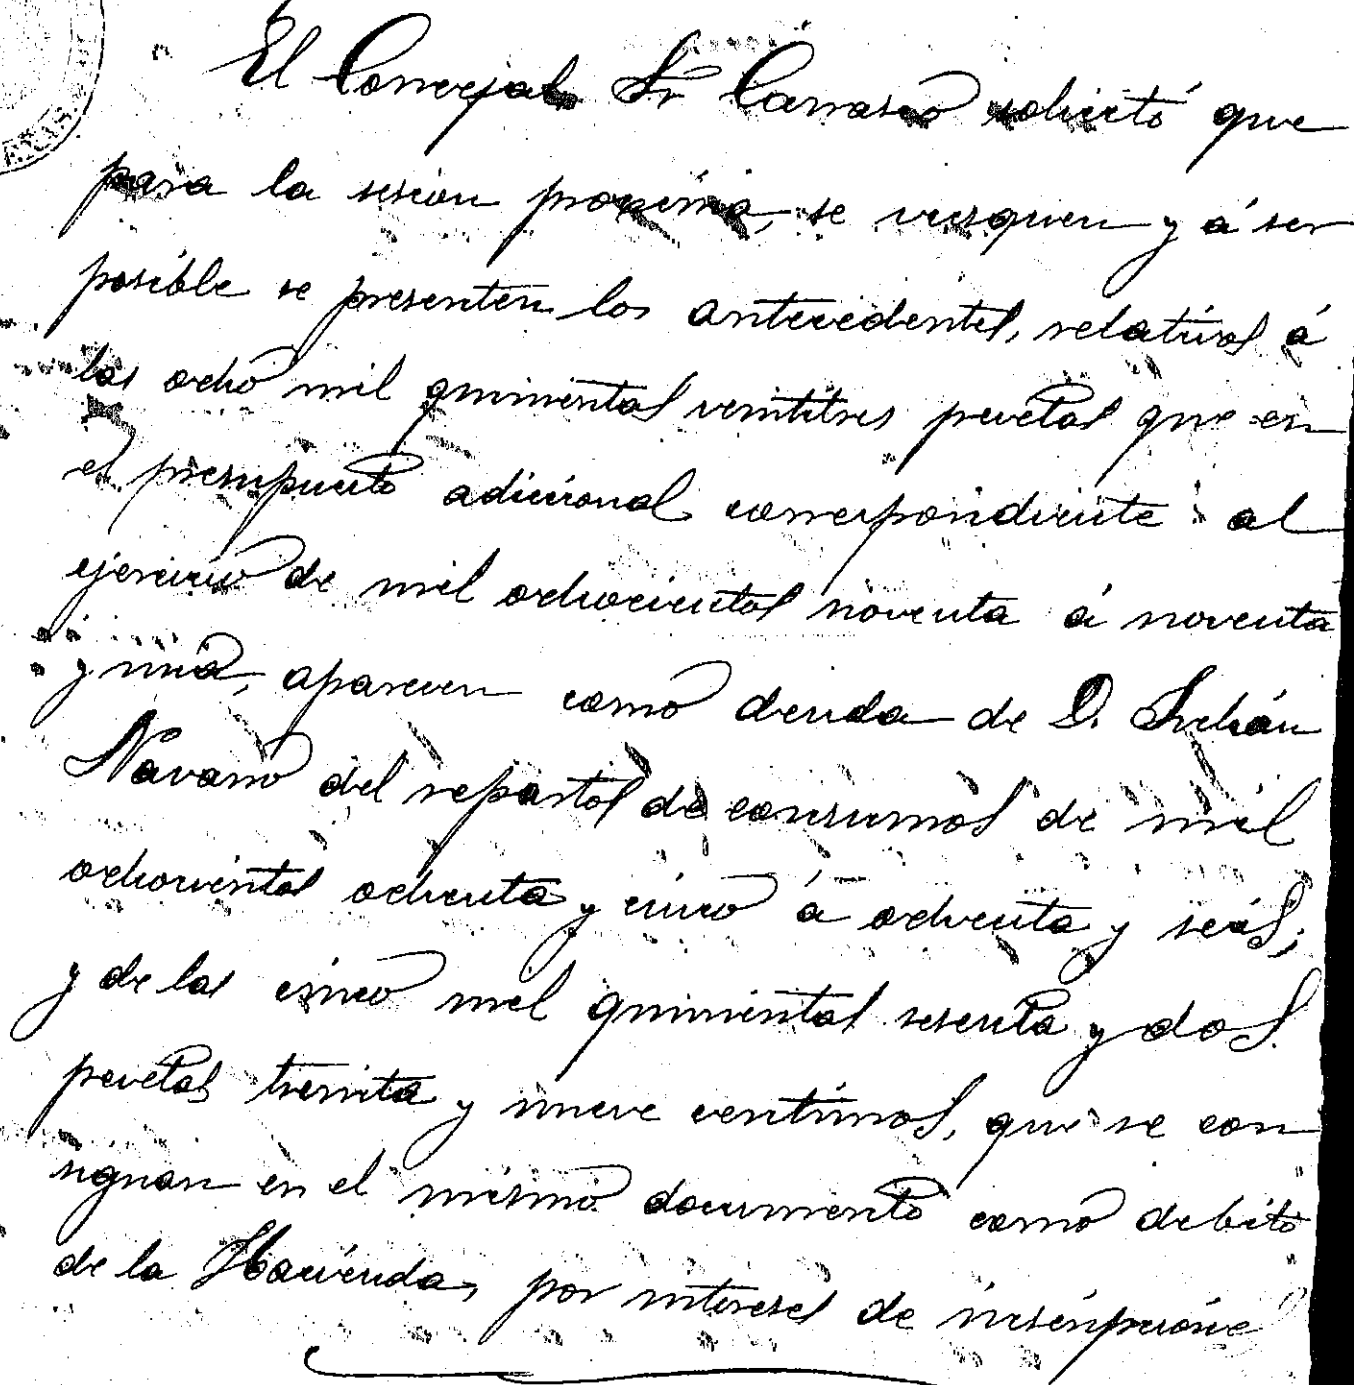 El Concejal Sr Carrasco solicitó que
para la sesion proxima, se busquen y á ser
posible se presenten los antecedentes, relativos á
las ocho mil quinientas veintitres pesetas que en
el presupuesto adicional correspondiente al
ejercicio de mil ochocientos noventa á noventa
y uno, aparecen como deuda de D. Julián
Navarro del repartos de consumos de mil
ochocientos ochenta y cinco á ochenta y seis;
y de las cinco mil quinientas sesenta y dos
pesetas treinta y nueve centimos, que se con
signan en el mismo documento como debito
de la Hacienda, por intereses de inscripcione